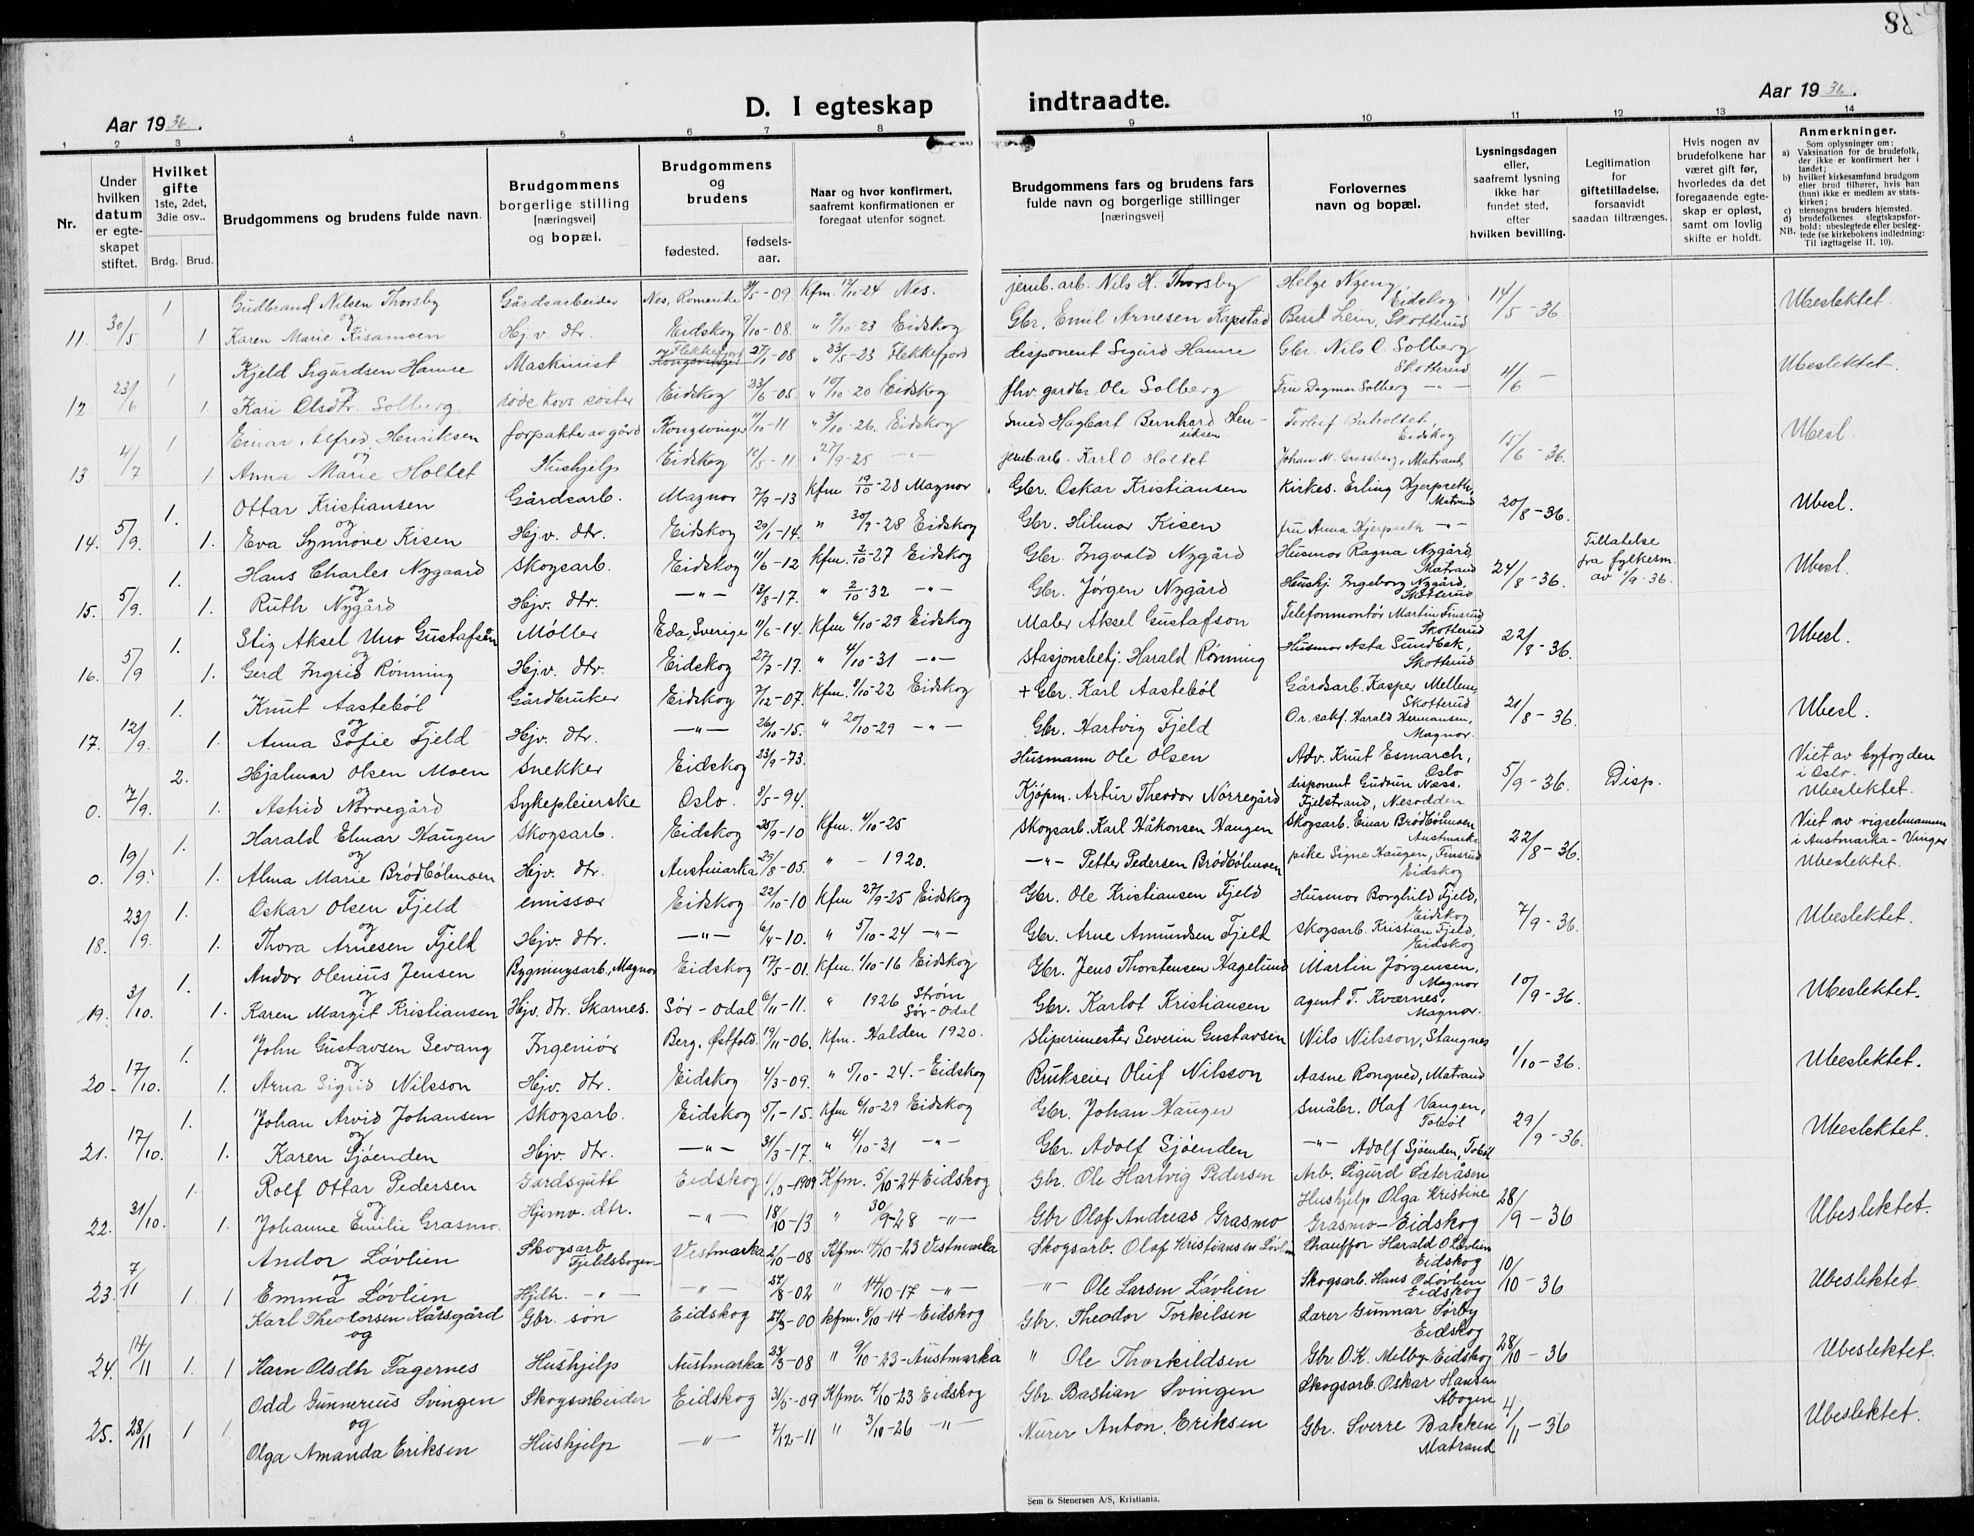 88
Aar 1936.
D. I egteskap
indtraadte.
Aar 1936.
1 2 3 4 5 6 7 8 9 10 11 12 13 14
Nr.
Under hvilken datum er egteskapet stiftet.
Hvilket gifte 1ste, 2det, 3die osv..
Brdg. Brud.
Brudgommens og brudens fulde navn.
Brudgommens borgerlige stilling [næringsvei] og bopæl.
Brudgommens og brudens
fødested.
fødsels-aar.
Naar og hvor konfirmert, saafremt konfirmationen er foregaat utenfor sognet.
Brudgommens fars og brudens fars fulde navn og borgerlige stillinger [næringsvei]
Forlovernes navn og bopæl.
Lysningsdagen eller, saafremt lysning ikke har fundet sted, efter hvilken bevilling.
Legitimation for giftetilladelse, forsaavidt saadan tiltrænges.
Hvis nogen av brudefolkene har været gift før, hvorledes da det foregaaende egteskap er opløst, samt om lovlig skifte er holdt.
Anmerkninger.
Som oplysninger om:
a) Vaksination for de brudefolk, der ikke er konfirmert her i landet;
b) hvilket kirkesamfund brudgom eller brud tilhører, hvis han (hun) ikke er medlem av statskirken;
c) utensogns bruders hjemsted.
d) brudefolkenes slegtskapsforhold: ubeslegtede eller beslegtede (se kirkebokens indledning:
NB. Til iagttagelse II. 10).
1 Gudbrand Nilsen Thorsby Gårdsarbeider Nes, Romerike 5-09 Kfm. 10-24 Nes. jernb.arb. Nils H. Thorsby Helge Nyeng, Eidskog 14/5-36 Ubeslektet.
og
11. 30/5 1 Karen Marie Kisamoen Hj.v. dtr. Eidskog 10-08. " 10-23 Eidskog Gbr. Emil Arnesen Kapstad Berit Lein, Skotterud
1 Kjeld Sigurdsen Hamre Maskinist Flekkefjord 27/1-08 " 23/5-23 Flekkefjord disponent Sigurd Hamre Gbr. Nils O. Solberg Skotterud 4/6 - Ubeslektet.
og
12 23/6 1. Kari Olsdtr. Solberg røde kors søster Eidskog 23/6-05. " 10/10-20 Eidskog fhv. gardbr. Ole Solberg Fru Dagmar Solberg -"-
1 Einar Alfred Henriksen forpakter av gård Kongsvinger 11/10-11 " 3/10-26. Eidskog Smed Hagbart Bernhard Henriksen Torleif Buholtet, Eidskog 15/6-36. Ubesl.
og
13 4/7 1 Anna Marie Holtet Hushjelp Eidskog 5-11. " 27/9-25 -"- jernb.arb. Karl O Holtet Johan M. Grossberg, Matrand
1. Ottar Kristiansen Gårdsarb. Magnor 7/9-13 Kfm 19/10-28 Magnor Gbr. Oskar Kristiansen Kirkes. Erling Hjerpseth, Matrand 20/8-36. Ubesl.
og
14. 5/9. 1. Eva Synnøve Kisen Hj.v. dtr. Eidskog 20/1-14. " 30/9-28 Eidskog Gbr. Hilmar Kisen fru Anna Hjerpseth -"-
1. Hans Charles Nygaard Skogsarb. Eidskog 11/6-12 Kfm. 2/10-27 Eidskog Gbr. Ingvald Nygård Husmor Ragna Nygård, Matrand 24/8-36. Tillatelse fra fylkesm. av 1/9-36. Ubesl.
og
15. 5/9. 1. Ruth Nygård Hjv. dtr. -"- 13/8-17. " 2/10-32 -"- Gbr. Jørgen Nygård Hushj. Ingeborg Nygård, Skotterud
1. Stig Aksel Uno Gustafson Møller Eda, Sverige 11/6-14. Kfm 6/10-29 Eidskog Maler Aksel Gustafson Telefonmontør Martin Finsrud Skotterud 22/8-36. Ubesl.
og
16. 5/9 1. Gerd Ingrid Rønning Hjv. dtr. Eidskog 27/7-17. " 4/10-31 -"- Stasjonsbetj. Harald Rønning Husmor Asta Sundbek, Skotterud
1. Knut Aastebøl Gårdbruker Eidskog 7/12-07. Kfm. 8/10-22 Eidskog + Gbr. Karl Aastebøl Gårdsarb. Kasper Mellem, Skotterud 21/8-36. Ubesl.
og
17. 12/9. 1. Anna Sofie Fjeld Hjv. dtr. -"- 26/10-15. " 20/10-29 -"- Gbr. Hartvig Fjeld O.r.sakf. Harald Hermansen, Magnor.
2. Hjalmar Olsen Moen Snekker Eidskog 23/9-73. Husmann Ole Olsen Adv. Knut Esmarch, Oslo 5/9-36. Disp. Viet av byfogden i Oslo. Ubeslektet.
og
0. 7/9. 1. Astrid Nørregård Sykepleierske Oslo. 8/5-94. Kjøpm. Artur Theodor Nørregård disponent Gudrun Næss, Fjelstrand, Nesodden
1. Harald Elmar Haugen Skogsarb. Eidskog 25/9-10 Kfm. 4/10-25 Skogsarb. Karl Håkonsen Haugen Skogsarb. Einar Brødbølmoen, Austmarka 22/8-36. Viet av vigselmannen i Austmarka - Vinger Ubeslektet.
og
0. 19/9. 1. Alma Marie Brødbølmoen Hjv. dtr. Austmarka 29/8-05. " - 1920. -"- Petter Pedersen Brødbølmoen pike Signe Haugen, Finsrud Eidskog
1. Oskar Olsen Fjeld emissær Eidskog 22/10-10 Kfm 27/9-25 Eidskog Gbr. Ole Kristiansen Fjeld Husmor Borghild Fjeld, Eidskog 7/9-36. Ubeslektet.
og
18. 23/9. 1. Thora Arnesen Fjeld Hjv. dtr. -"- 6/4-10. " 5/10-24 -"- Gbr. Arne Amundsen Fjeld Skogsarb. Kristian Fjeld, Eidskog
1. Andor Olenius Jensen Bygningsarb, Magnor Eidskog 17/5-01. Kfm. 1/10-16 Eidskog Gbr. Jens Thorstensen Hagelund Martin Jørgensen, Magnor 10/9-36. Ubeslektet.
og
19. 3/10. 1. Karen Margit Kristiansen Hjv. dtr. Skarnes. Sør-Odal 6/11-11. " 1926 Strøm Sør-Odal Gbr. Karlot Kristiansen agent T. Kværnes, Magnor.
1. John Gustavsen Sevang Ingeniør Berg, Østfold. 19/11-06. Kfm. Halden 1920. Sliperimester Severin Gustavsen Nils Nilsson, Stangnes 1/10-36. Ubeslektet.
og
20- 17/10. 1. Arna Sigrid Nilsson Hjv. dtr. Eidskog 4/3-09. " 5/10-24.- Eidskog Brukseier Oluf Nilsson Aasne Rongved, Matrand
1. Johan Arvid Johansen Skogsarb. Eidskog 5/1-15. Kfm 6/10-29 Eidskog Gbr. Johan Hauger Småbr. Olaf Vangen, Tobøl 29/9-36. Ubeslektet.
og
21. 17/10. 1. Karen Sjøenden Hjv. dtr. -"- 31/3-17. " 4/10-31 -"- Gbr. Adolf Sjøenden -"- Adolf Sjøenden, Tobøl
1. Rolf Ottar Pedersen Gårdsgutt Eidskog 1/10-1909 Kfm. 5/10-24 Eidskog Gbr. Ole Hartvig Pedersen Arb. Sigurd Sæteråsen 28/9-36 Ubeslektet.
og
22. 31/10. 1. Johanne Emilie Grasmo. Hjemv. dtr. -"- 18/10-13 " 30/9-28 -"- Gbr Olaf Andreas Grasmo Hushjelp Olga Kristine Grasmo-Eidskog
Andor Løvlien Skogsarb Fjeldskogen Vestmarka 2/10-08 Kfm. 14/10-23 Vestmarka Skogsarb. Olaf Kristiansen Løvlien Chauffør Harald O Løvlien Eidskog 10/10-36 Ubeslektet.
og
23. 7/11 1 1 Emma Løvlien Hjth. -"- -"- 27/8-02 " 14/10-17 -"- -"- Ole Larsen Løvlien Skogsarb. Hans O Løvlien Eidskog
Karl Theodorsen Kårsgård Gbr. søn Eidskog 27/3-00 kfm. 8/10-14-Eidskog Gbr. Theodor Torkilsen Lærer Gunnar Sørby Eidskog 28/10-36 Ubeslektet.
og
24. 14/11 1. 1 Harn Olsdtr Fagernes Hushjelp Austmarka 23/3-08 " 9/10-23-Austmarka " Ole Thorkildsen Gbr. O.K. Melby-Eidskog
Odd Gunnerius Svingen Skogsarbeider Eidskog 31/5-09 Kfm. 7/10-23 Eidskog Gbr. Bastian Svingen Skogsarb. Oskar Hansen Åbogen 4/11-36 Ubeslektet.
og
25. 28/11 1 1 Olga Amanda Eriksen Hushjelp -"- 7/12-11 " 3/10-26 -"- Murer Anton. Eriksen Gbr. Sverre Bakken Matrand
Sem & Stenersen A/S, Kristiania.